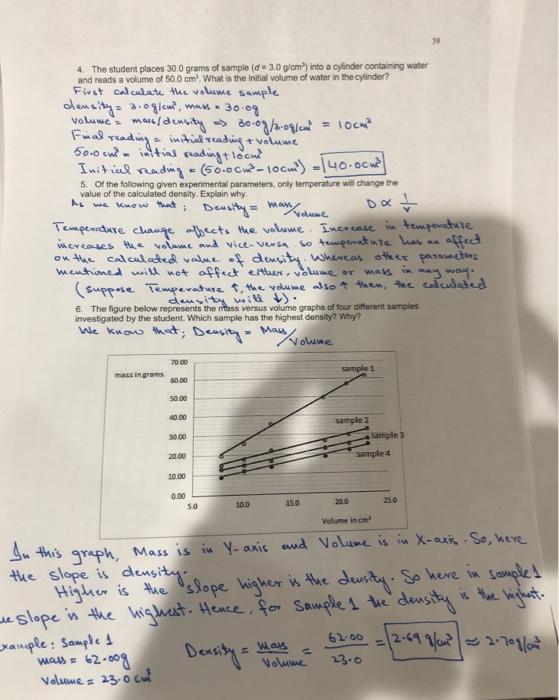 39
4. The student places 30.0 grams of sample (d = 3.0 g/cm³) into a cylinder containing water
and reads a volume of 50.0 cm³. What is the initial volume of water in the cylinder?
First calculate the volume sample
density = 3.0g/cm³, mass = 30.0g
Volume = mass/density => 30.0g/3.0g/cm³ = 10cm³
Final reading = initial reading + volume
50.0 cm³ = initial reading + 10cm³
Initial reading = (50.0cm³ - 10cm³) = 40.0cm³
5. Of the following given experimental parameters, only temperature will change the
value of the calculated density. Explain why.
As we know that; Density = mass/Volume D ∝ 1/v
Temperature change affects the volume. Increase in temperature
increases the volume and vice-versa. So temperature has an affect
on the calculated value of density. Whereas other parameters
mentioned will not affect either, volume or mass in any way.
(Suppose Temperature ↑, the volume also ↑ then, the calculated
density will ↓).
6. The figure below represents the mass versus volume graphs of four different samples
investigated by the student. Which sample has the highest density? Why?
We know that; Density = Mass/Volume
mass in grams
70.00
60.00
50.00
40.00
30.00
20.00
10.00
0.00
sample 1
sample 2
sample 3
sample 4
5.0 10.0 15.0 20.0 25.0
Volume in cm³
In this graph, Mass is in Y-axis and Volume is in X-axis. So, here
the slope is density.
Higher is the slope higher is the density. So here in sample 1
slope is the highest. Hence, for Sample 1 the density is the highest.
Sample 1
mass = 62.00g
Volume = 23.0 cm³
Density = Mass/Volume = 62.00/23.0 = 2.69 g/cm³ ≈ 2.70g/cm³